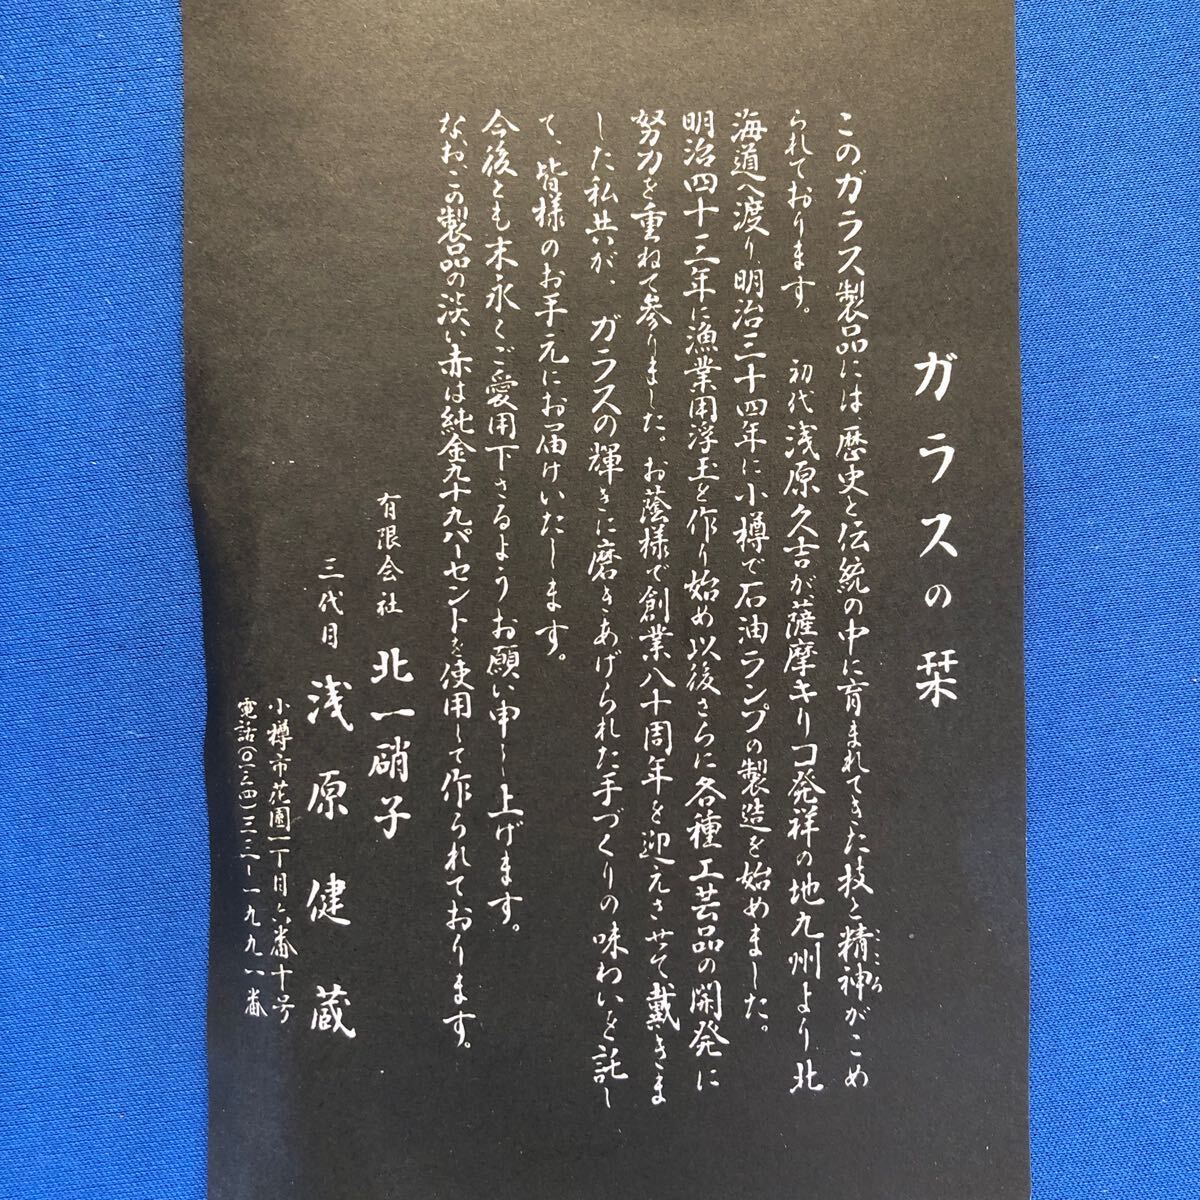 ガラスの栞
このガラス製品には、歴史と伝統の中に育まれてきた技と精神がこめ
こころ
られております。 初代浅原久吉が薩摩キリコ発祥の地九州より北
海道へ渡り、明治三十四年に小樽で石油ランプの製造を始めました。
明治四十三年に漁業用浮玉を作り始め以後さらに各種工芸品の開発に
努力を重ねて参りました。お蔭様で創業八十周年を迎えさせて戴きま
した私共が、ガラスの輝きに磨きあげられた手づくりの味わいを託し
て、皆様のお手元にお届けいたします。
今後とも末永くご愛用下さるようお願い申し上げます。
なお、この製品の淡い赤は純金九十九パーセントを使用して作られております。
有限会社 北一硝子
三代目 浅原健蔵
小樽市花園一丁目六番十号
電話(〇一三四)三三―一九九一番